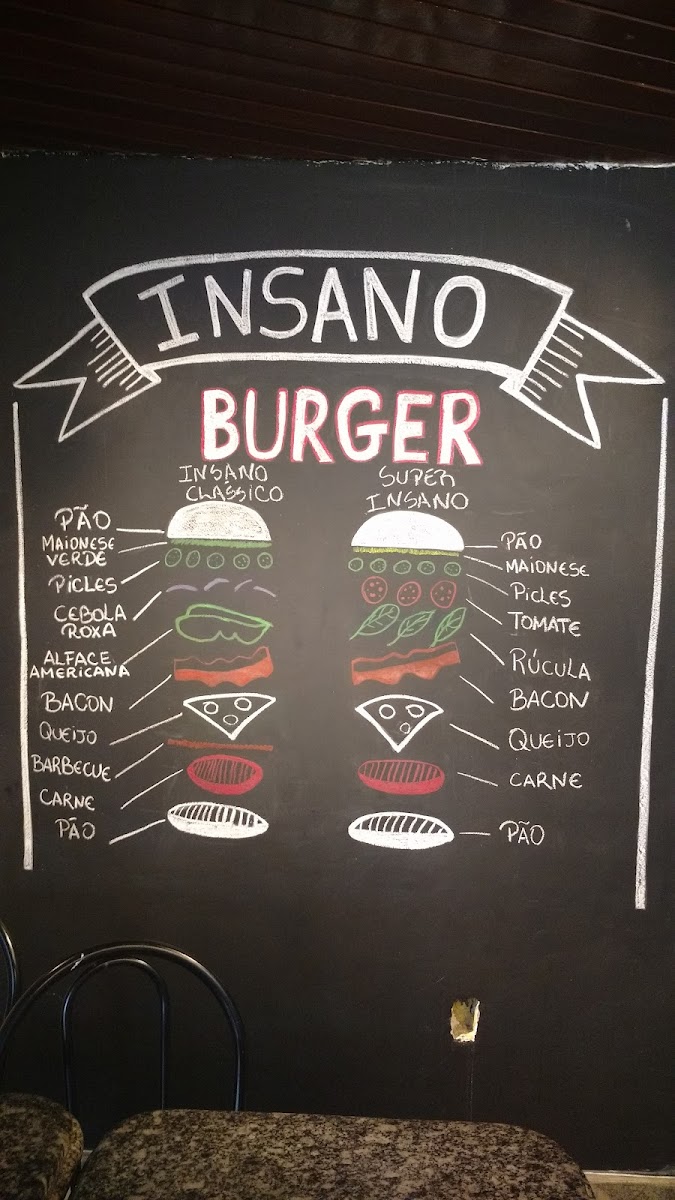 INSANO
BURGER
INSANO
CLÁSSICO
PÃO
MAIONESE
VERDE
PICLES
CEBOLA
ROXA
ALFACE
AMERICANA
BACON
QUEIJO
BARBECUE
CARNE
PÃO
SUPER
INSANO
PÃO
MAIONESE
PICLES
TOMATE
RÚCULA
BACON
QUEIJO
CARNE
PÃO